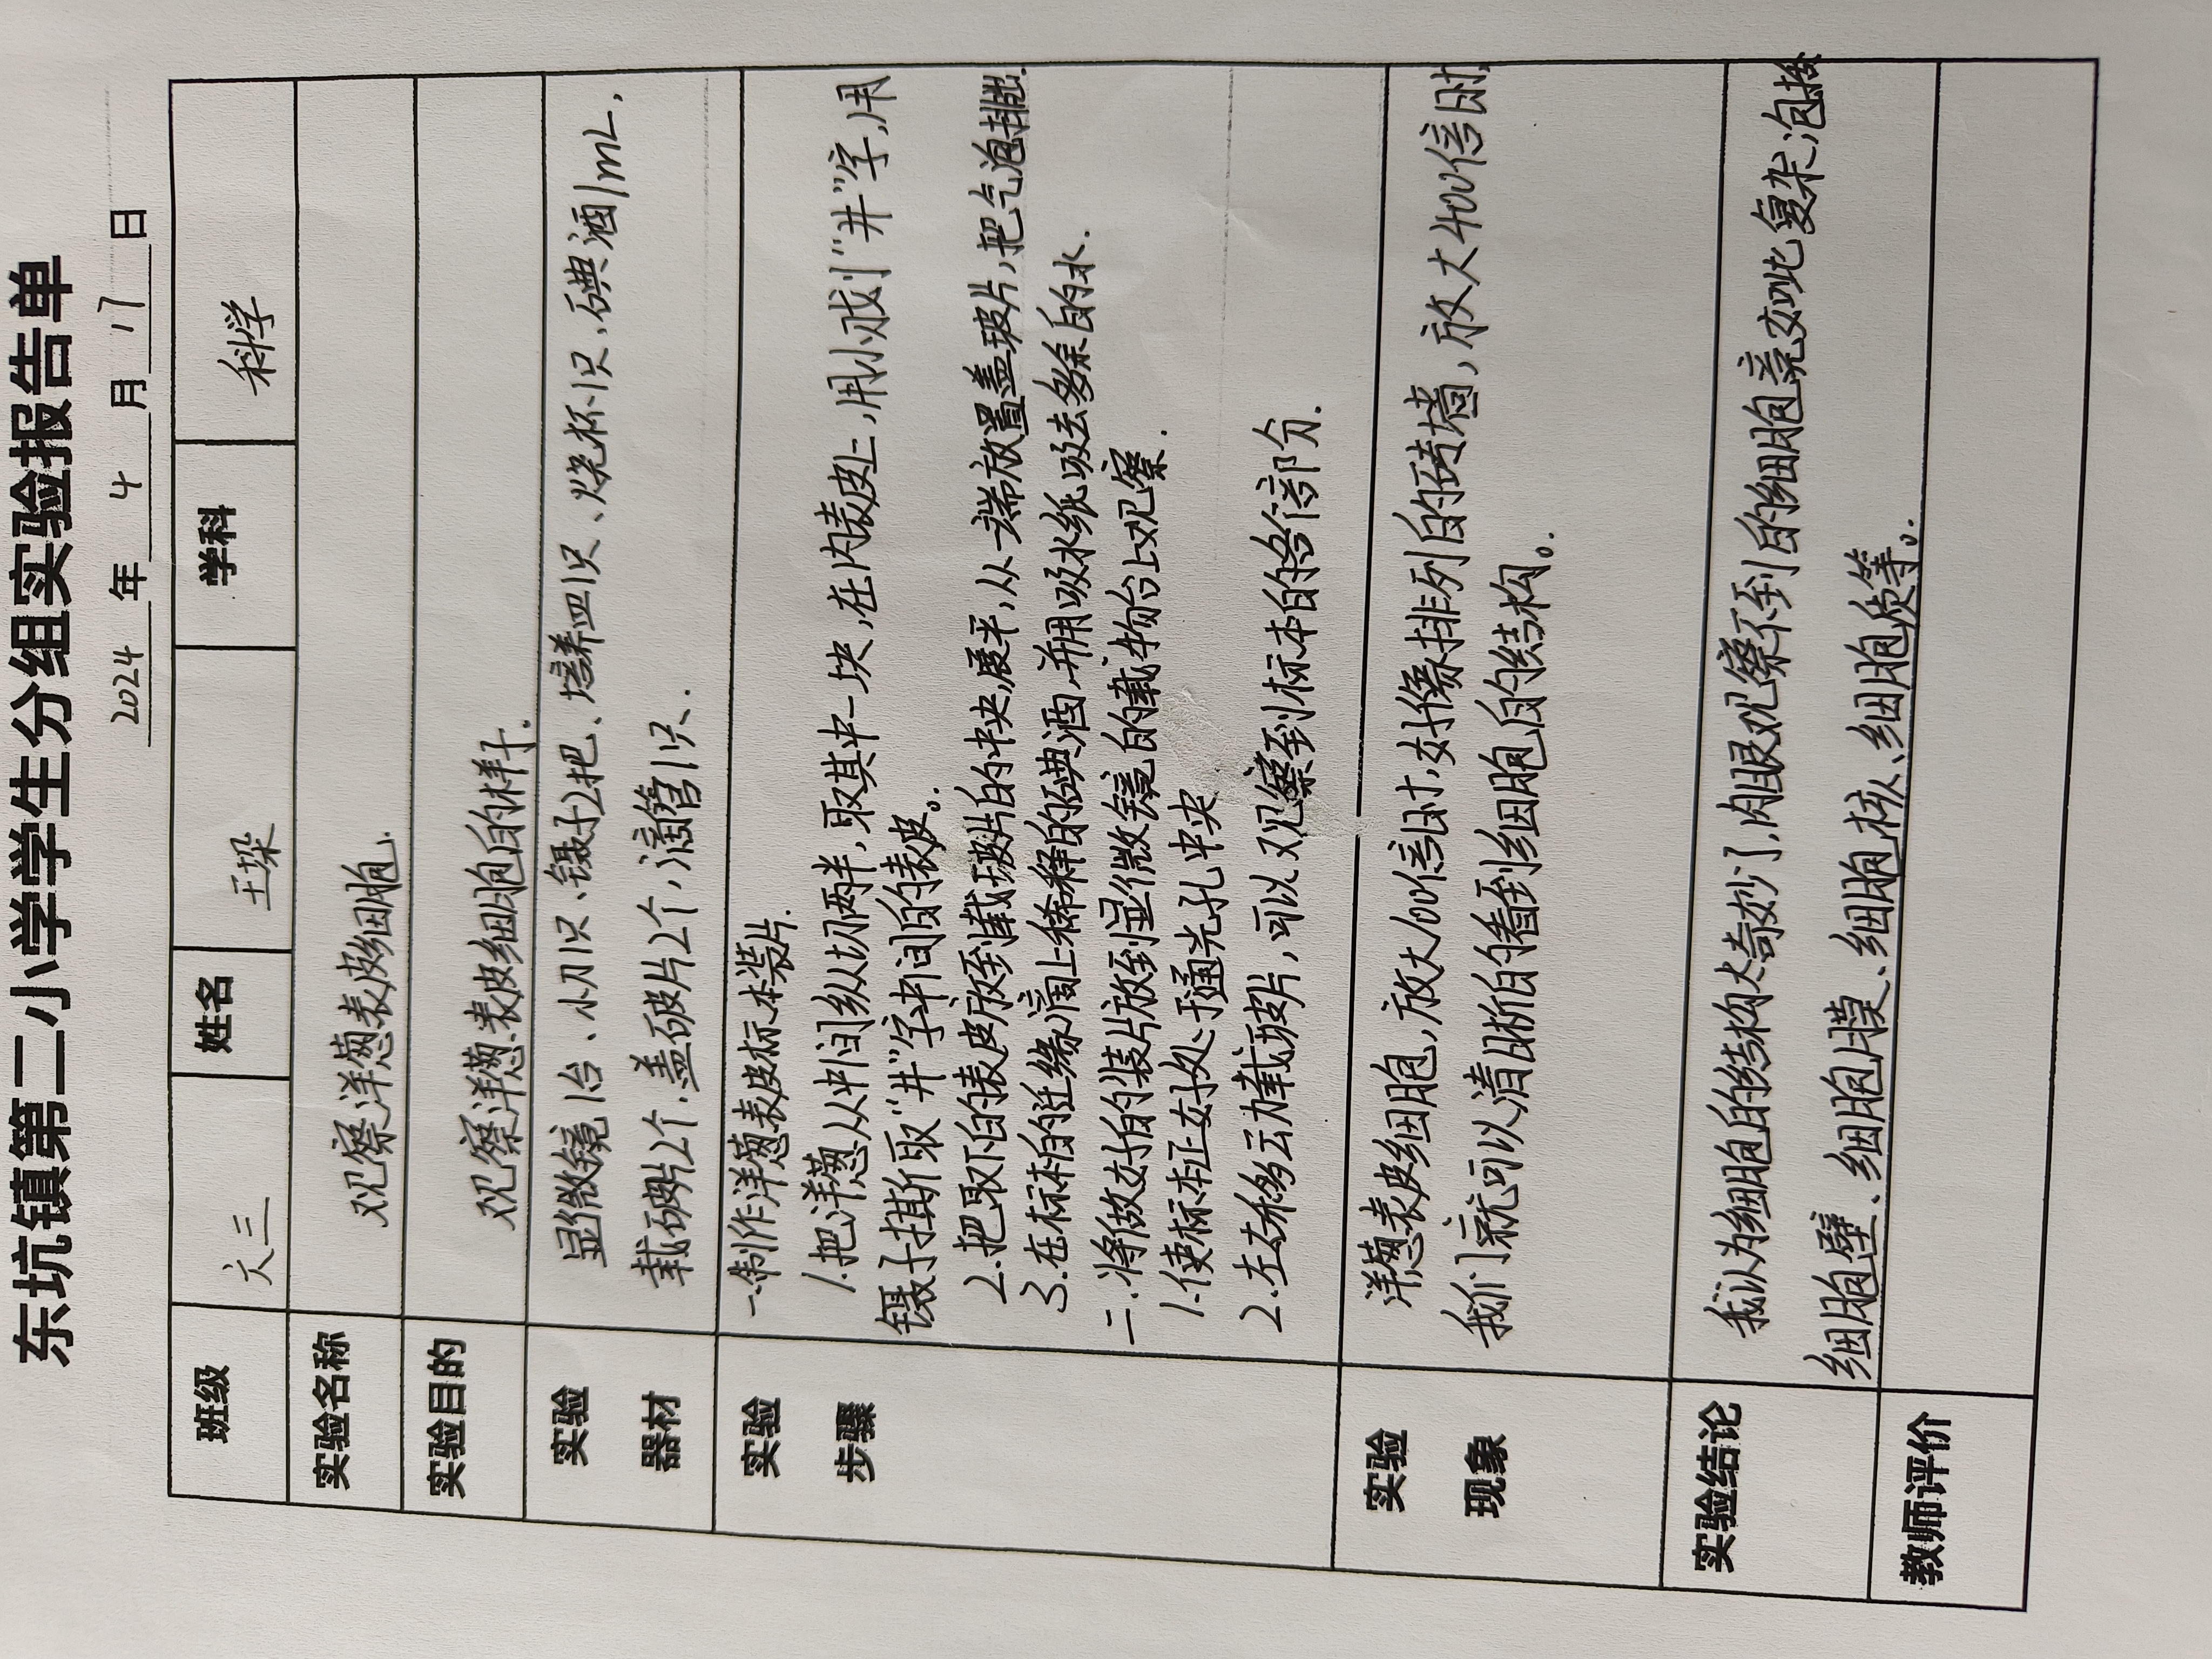 东坑镇第二小学学生分组实验报告单
2024年4月17日
班级 六三 姓名 王琛 学科 科学
实验名称 观察洋葱表皮细胞.
实验目的 观察洋葱表皮细胞的样子.
实验 显微镜1台、小刀1只、镊子2把、培养皿1只、烧杯1只、碘酒1mL,
器材 载玻片2个.盖玻片2个,滴管1只.
实验 一.制作洋葱表皮标本装片.
步骤 1.把洋葱从中间纵切两半,取其中一块,在内表皮上,用小戒划"井"字,用
镊子撕取"井"字中间的表皮。
2.把取下的表皮放到载玻片的中央,展平,从一端放置盖玻片,把气泡排出.
3.在标本的边缘滴上稀释的碘酒,并用吸水纸吸去多余的水.
二.将做好的装片放到显微镜的载物台上观察.
1.使标本正好处于通光孔中央
2.左右移动载玻片,可以观察到标本的各部分.
实验 洋葱表皮细胞,放大100倍时,好像排列的砖墙,放大400倍时,
现象 我们就可以清晰的看到细胞的结构。
实验结论 我认为细胞的结构太奇妙了,肉眼观察不到的细胞竟如此复杂,包括
细胞壁、细胞膜、细胞核、细胞质等。
教师评价